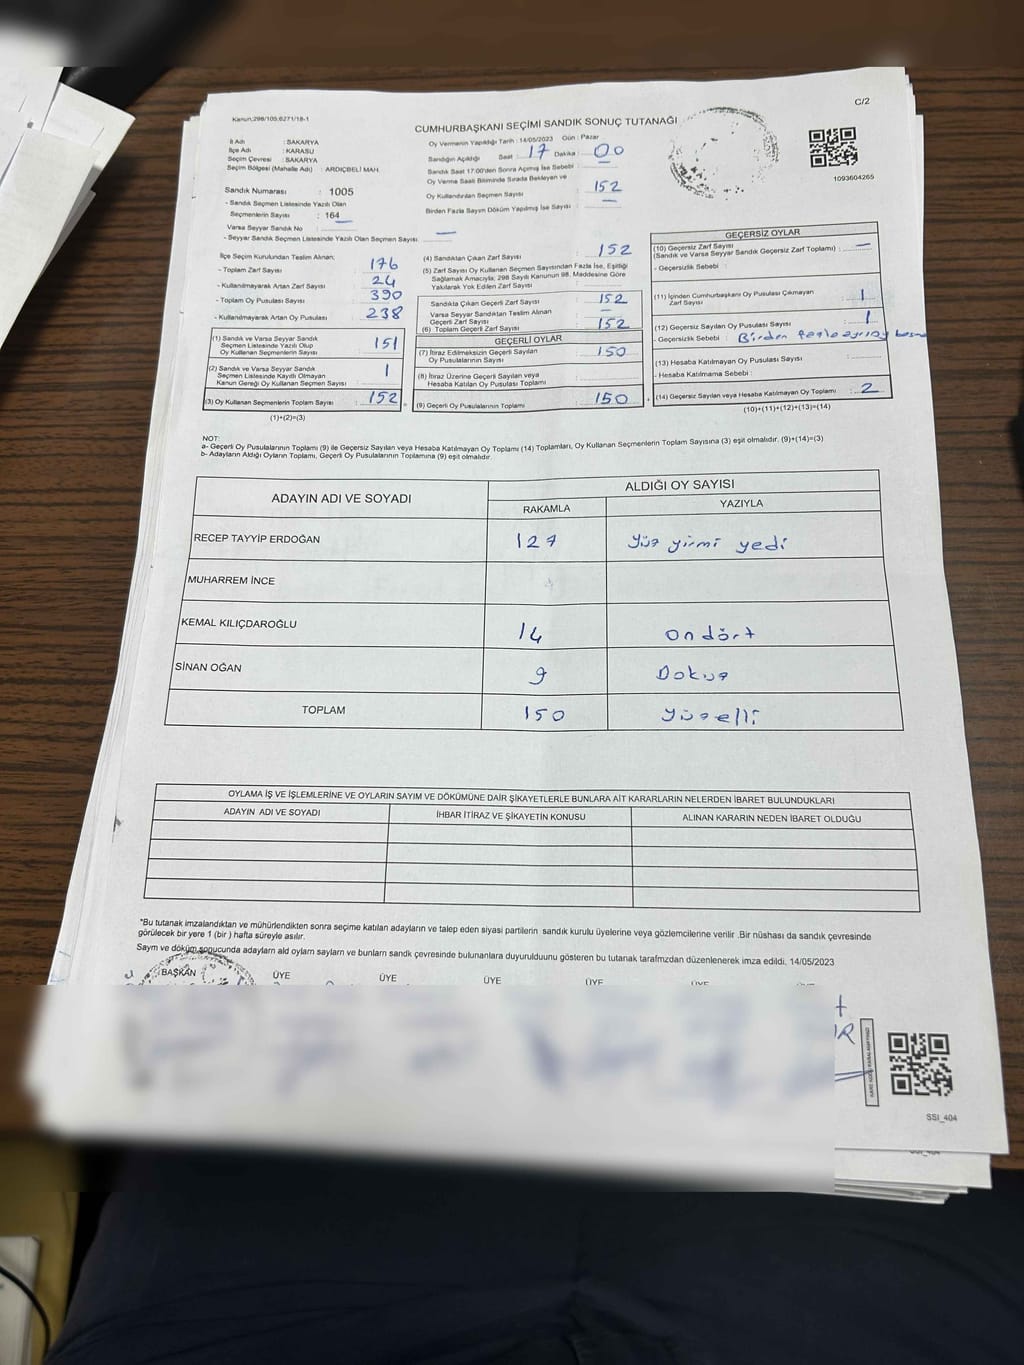 C/2
Kanun;298/105;6271/18-1
CUMHURBAŞKANI SEÇİMİ SANDIK SONUÇ TUTANAĞI
İl Adı : SAKARYA
İlçe Adı : KARASU
Seçim Çevresi : SAKARYA
Seçim Bölgesi (Mahalle Adı) : ARDIÇBELİ MAH.
Sandık Numarası : 1005
- Sandık Seçmen Listesinde Yazılı Olan
Seçmenlerin Sayısı : 164
Varsa Seyyar Sandık No :
- Seyyar Sandık Seçmen Listesinde Yazılı Olan Seçmen Sayısı : —
Oy Vermenin Yapıldığı Tarih : 14/05/2023 Gün : Pazar
Sandığın Açıldığı Saat : 17 Dakika : 00
Sandık Saat 17:00'den Sonra Açılmış İse Sebebi :
Oy Verme Saati Bitiminde Sırada Bekleyen ve
Oy Kullandırılan Seçmen Sayısı : 152
Birden Fazla Sayım Döküm Yapılmış İse Sayısı : —
1093604265
İlçe Seçim Kurulundan Teslim Alınan;
- Toplam Zarf Sayısı : 176
- Kullanılmayarak Artan Zarf Sayısı : 24
- Toplam Oy Pusulası Sayısı : 390
- Kullanılmayarak Artan Oy Pusulası : 238
(1) Sandık ve Varsa Seyyar Sandık
Seçmen Listesinde Yazılı Olup
Oy Kullanan Seçmenlerin Sayısı : 151
(2) Sandık ve Varsa Seyyar Sandık
Seçmen Listesinde Kayıtlı Olmayan
Kanun Gereği Oy Kullanan Seçmen Sayısı : 1
(3) Oy Kullanan Seçmenlerin Toplam Sayısı : 152
(1)+(2)=(3)
(4) Sandıktan Çıkan Zarf Sayısı : 152
(5) Zarf Sayısı Oy Kullanan Seçmen Sayısından Fazla İse, Eşitliği
Sağlamak Amacıyla; 298 Sayılı Kanunun 98. Maddesine Göre
Yakılarak Yok Edilen Zarf Sayısı :
Sandıkta Çıkan Geçerli Zarf Sayısı : 152
Varsa Seyyar Sandıktan Teslim Alınan
Geçerli Zarf Sayısı : —
(6) Toplam Geçerli Zarf Sayısı : 152
GEÇERLİ OYLAR
(7) İtiraz Edilmeksizin Geçerli Sayılan
Oy Pusulalarının Sayısı : 150
(8) İtiraz Üzerine Geçerli Sayılan veya
Hesaba Katılan Oy Pusulası Toplamı :
(9) Geçerli Oy Pusulalarının Toplamı : 150
GEÇERSİZ OYLAR
(10) Geçersiz Zarf Sayısı
(Sandık ve Varsa Seyyar Sandık Geçersiz Zarf Toplamı) : —
- Geçersizlik Sebebi :
(11) İçinden Cumhurbaşkanı Oy Pusulası Çıkmayan
Zarf Sayısı : 1
(12) Geçersiz Sayılan Oy Pusulası Sayısı : 1
- Geçersizlik Sebebi : Birden fazla
(13) Hesaba Katılmayan Oy Pusulası Sayısı :
- Hesaba Katılmama Sebebi :
(14) Geçersiz Sayılan veya Hesaba Katılmayan Oy Toplamı : 2
(10)+(11)+(12)+(13)=(14)
NOT:
a- Geçerli Oy Pusulalarının Toplamı (9) ile Geçersiz Sayılan veya Hesaba Katılmayan Oy Toplamı (14) Toplamları, Oy Kullanan Seçmenlerin Toplam Sayısına (3) eşit olmalıdır. (9)+(14)=(3)
b- Adayların Aldığı Oyların Toplamı, Geçerli Oy Pusulalarının Toplamına (9) eşit olmalıdır.
ADAYIN ADI VE SOYADI
ALDIĞI OY SAYISI
RAKAMLA YAZIYLA
RECEP TAYYİP ERDOĞAN 127 Yüz yirmi yedi
MUHARREM İNCE
KEMAL KILIÇDAROĞLU 14 on dört
SİNAN OĞAN 9 Dokuz
TOPLAM 150 yüzelli
OYLAMA İŞ VE İŞLEMLERİNE VE OYLARIN SAYIM VE DÖKÜMÜNE DAİR ŞİKAYETLERLE BUNLARA AİT KARARLARIN NELERDEN İBARET BULUNDUKLARI
ADAYIN ADI VE SOYADI İHBAR İTİRAZ VE ŞİKAYETİN KONUSU ALINAN KARARIN NEDEN İBARET OLDUĞU
*Bu tutanak imzalandıktan ve mühürlendikten sonra seçime katılan adayların ve talep eden siyasi partilerin sandık kurulu üyelerine veya gözlemcilerine verilir .Bir nüshası da sandık çevresinde
görülecek bir yere 1 (bir ) hafta süreyle asılır.
Saym ve döküm sonucunda adaylarn ald oylarn saylarn ve bunlarn sandk çevresinde bulunanlara duyurulduunu gösteren bu tutanak tarafmzdan düzenlenerek imza edildi, 14/05/2023
BAŞKAN ÜYE ÜYE ÜYE ÜYE ÜYE
SSI_404